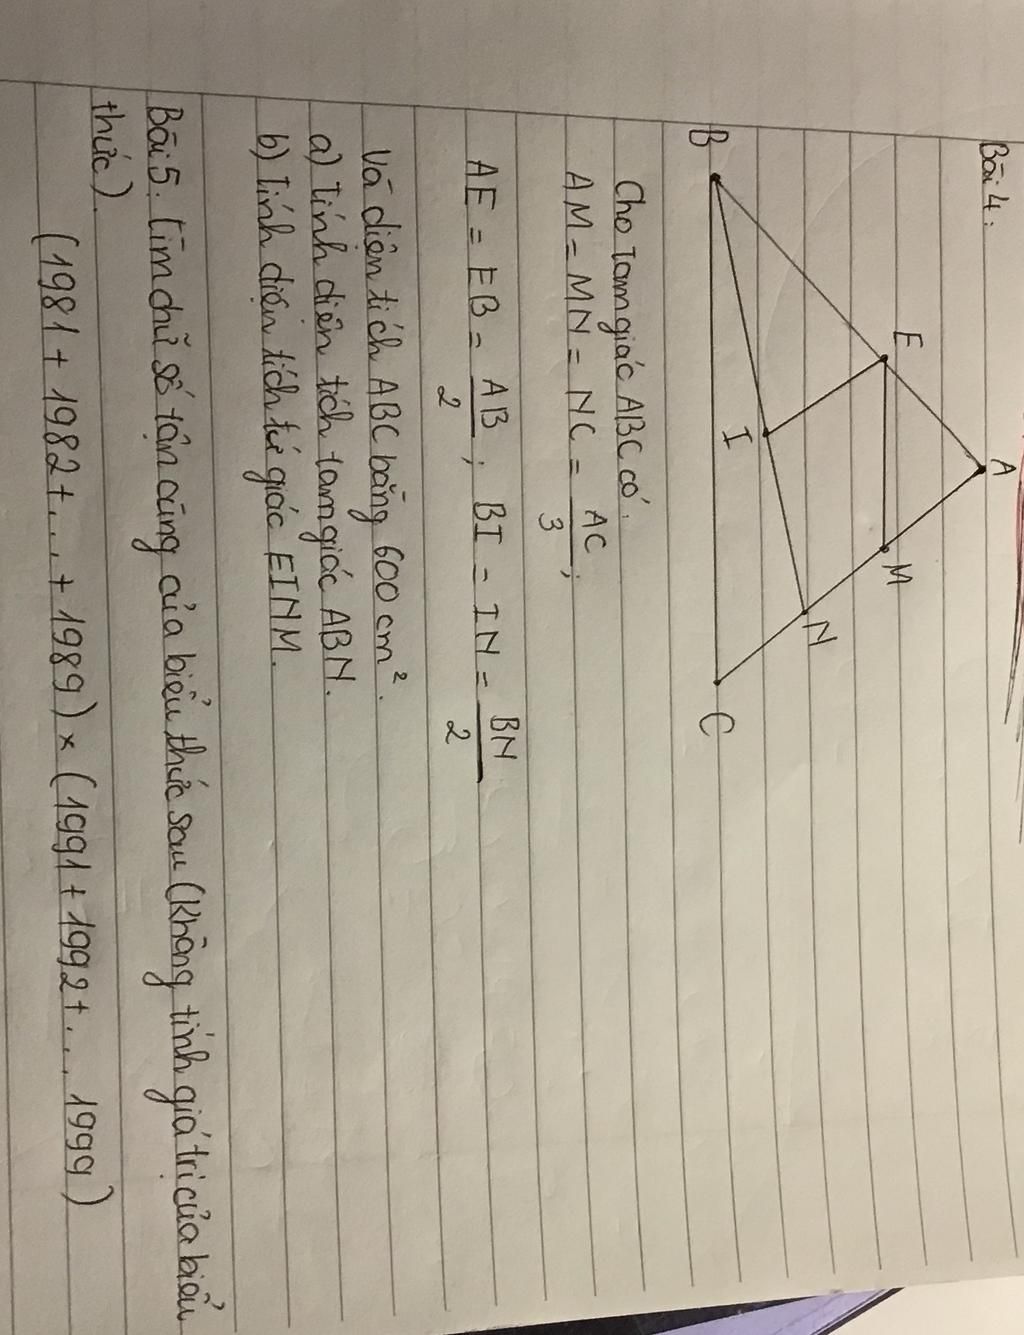 Bài 4:
A
E
M
N
I
B
C
Cho Tam giác ABC có:
AM = MN = NC = AC/3 ;
AE = EB = AB/2 ; BI = IN = BN/2
Và diện tích ABC bằng 600 cm².
a) Tính diện tích tam giác ABN.
b) Tính diện tích tứ giác EINM.
Bài 5: Tìm chữ số tận cùng của biểu thức sau (Không tính giá trị của biểu
thức).
(1981 + 1982 + ... + 1989) × (1991 + 1992 + ... 1999)